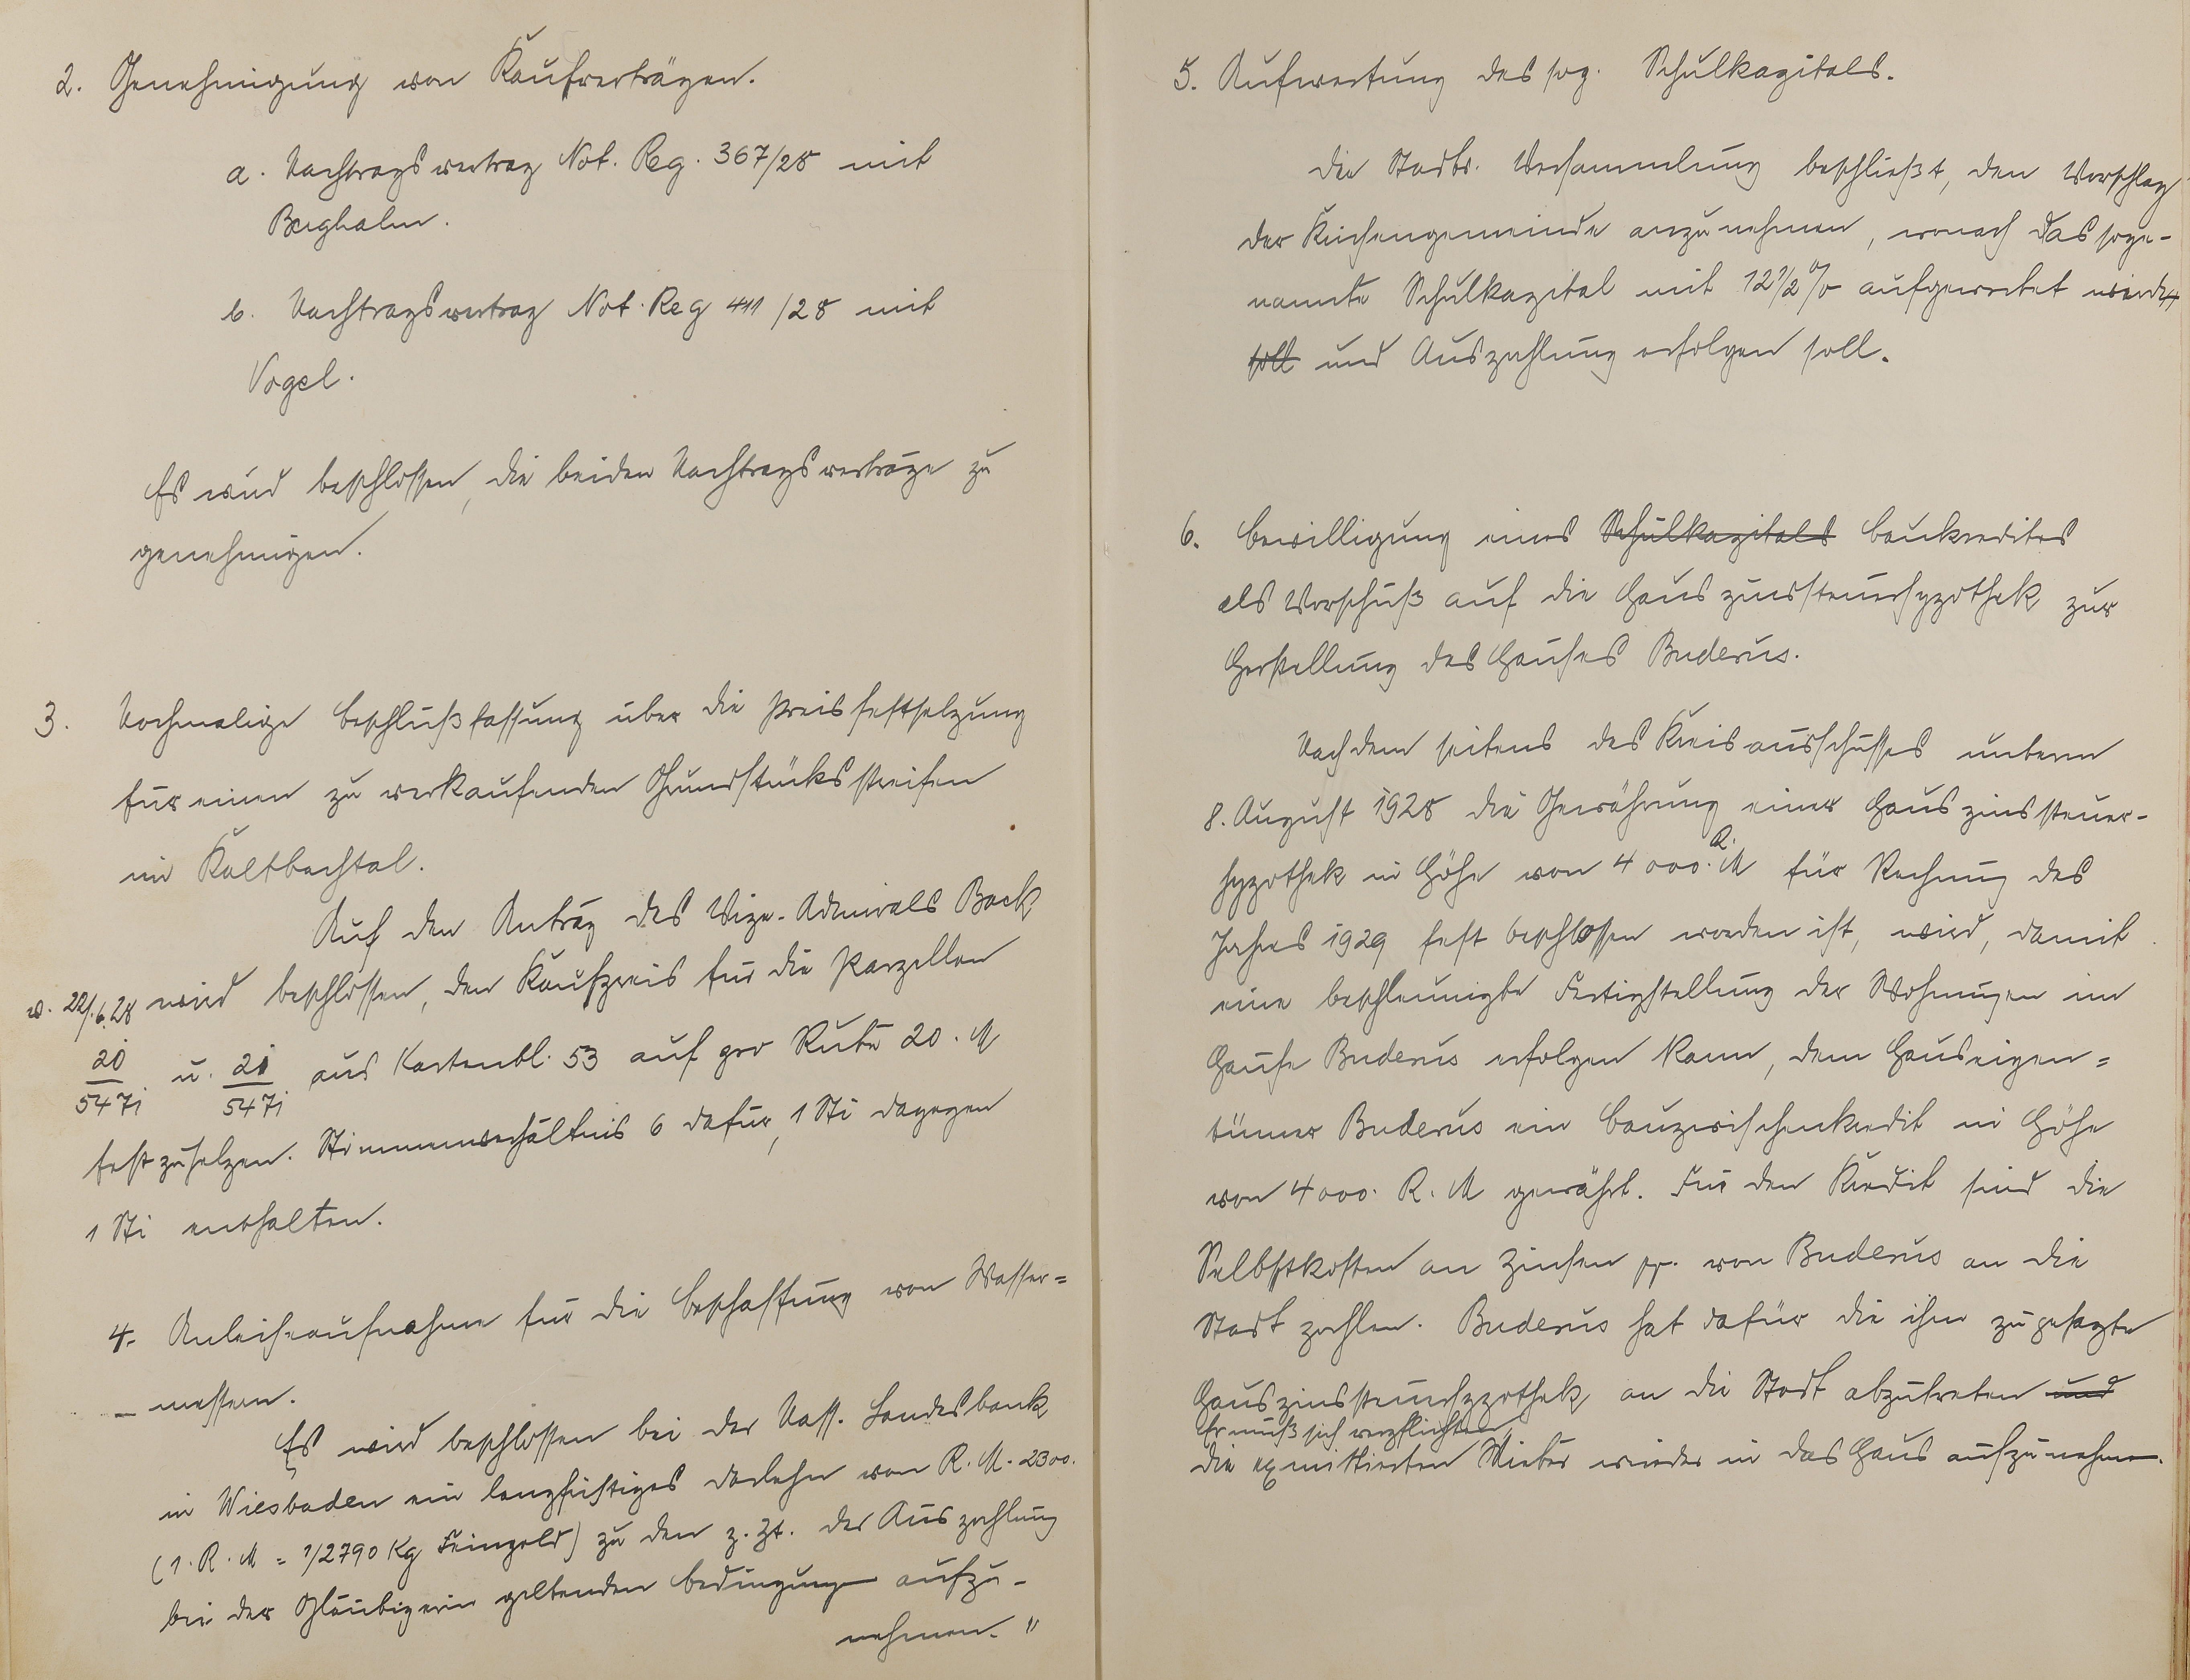 2. Genehmigung von Kaufverträgen.
a. Nachtragsvertrag Not. Reg. 367/28 mit
Berghahn.
b. Nachtragsvertrag Not. Reg 411/28 mit
Vogel.
Es wird beschlossen, die beiden Nachtragsverträge zu
genehmigen.
3. Nochmalige Beschlußfassung über die Preisfestsetzung
für einen zu verkaufenden Grundstücksstreifen
im Kaltbachtal.
Auf den Antrag des Vize-Admirals Back
v. 22/.6.28 wird beschlossen, den Kaufpreis für die Parzellen
20/5471 u. 21/5471 aus Kartenbl. 53 auf pro Rute 20. M
festzusetzen. Stimmenverhältnis 6 dafür, 1 Sti dagegen
1 Sti enthalten.
4. Anleiheaufnahme für die Beschaffung von Wasser=
- messern.
Es wird beschlossen bei der Nass. Landesbank
in Wiesbaden ein langfristiges Darlehn von R. M. 2300.
(1. R. M = 1/2790 Kg Feingold) zu den z. Zt. der Auszahlung
bei der Gläubigerin geltenden Bedingungen aufzu-
nehmen. "
5. Aufwertung des sog. Schulkapitals.
Die Stadtv. Versammlung beschließt, den Vorschlag
der Kirchengemeinde anzunehmen, wonach das soge-
nannte Schulkapital mit 12 1/2 % aufgewertet
soll und Auszahlung erfolgen soll.
6. Bewilligung eines Schulkapitals Baukredites
als Vorschuß auf die Hauszinssteuerhypothek zur
Herstellung des Hauses Buderus.
Nachdem seitens des Kreisausschusses unterm
8. August 1928 die Gewährung einer Hauszinssteuer-
hypothek in Höhe von 4000. R. M für Rechnung des
Jahres 1929 fest beschlossen worden ist, wird, damit
eine beschleunigte Fertigstellung der Wohnungen im
Hause Buderus erfolgen kann, dem Hauseigen=
tümer Buderus ein Bauzwischenkredit in Höhe
von 4000. R. M gewährt. Für den Kredit sind die
Selbstkosten an Zinsen pp. von Buderus an die
Stadt zahlen. Buderus hat dafür die ihm zugesagte
Hauszinssteuerhypothek an die Stadt abzutreten und
Er muß sich verpflichten,
die exmittierten Mieter wieder in das Haus aufzunehmen.